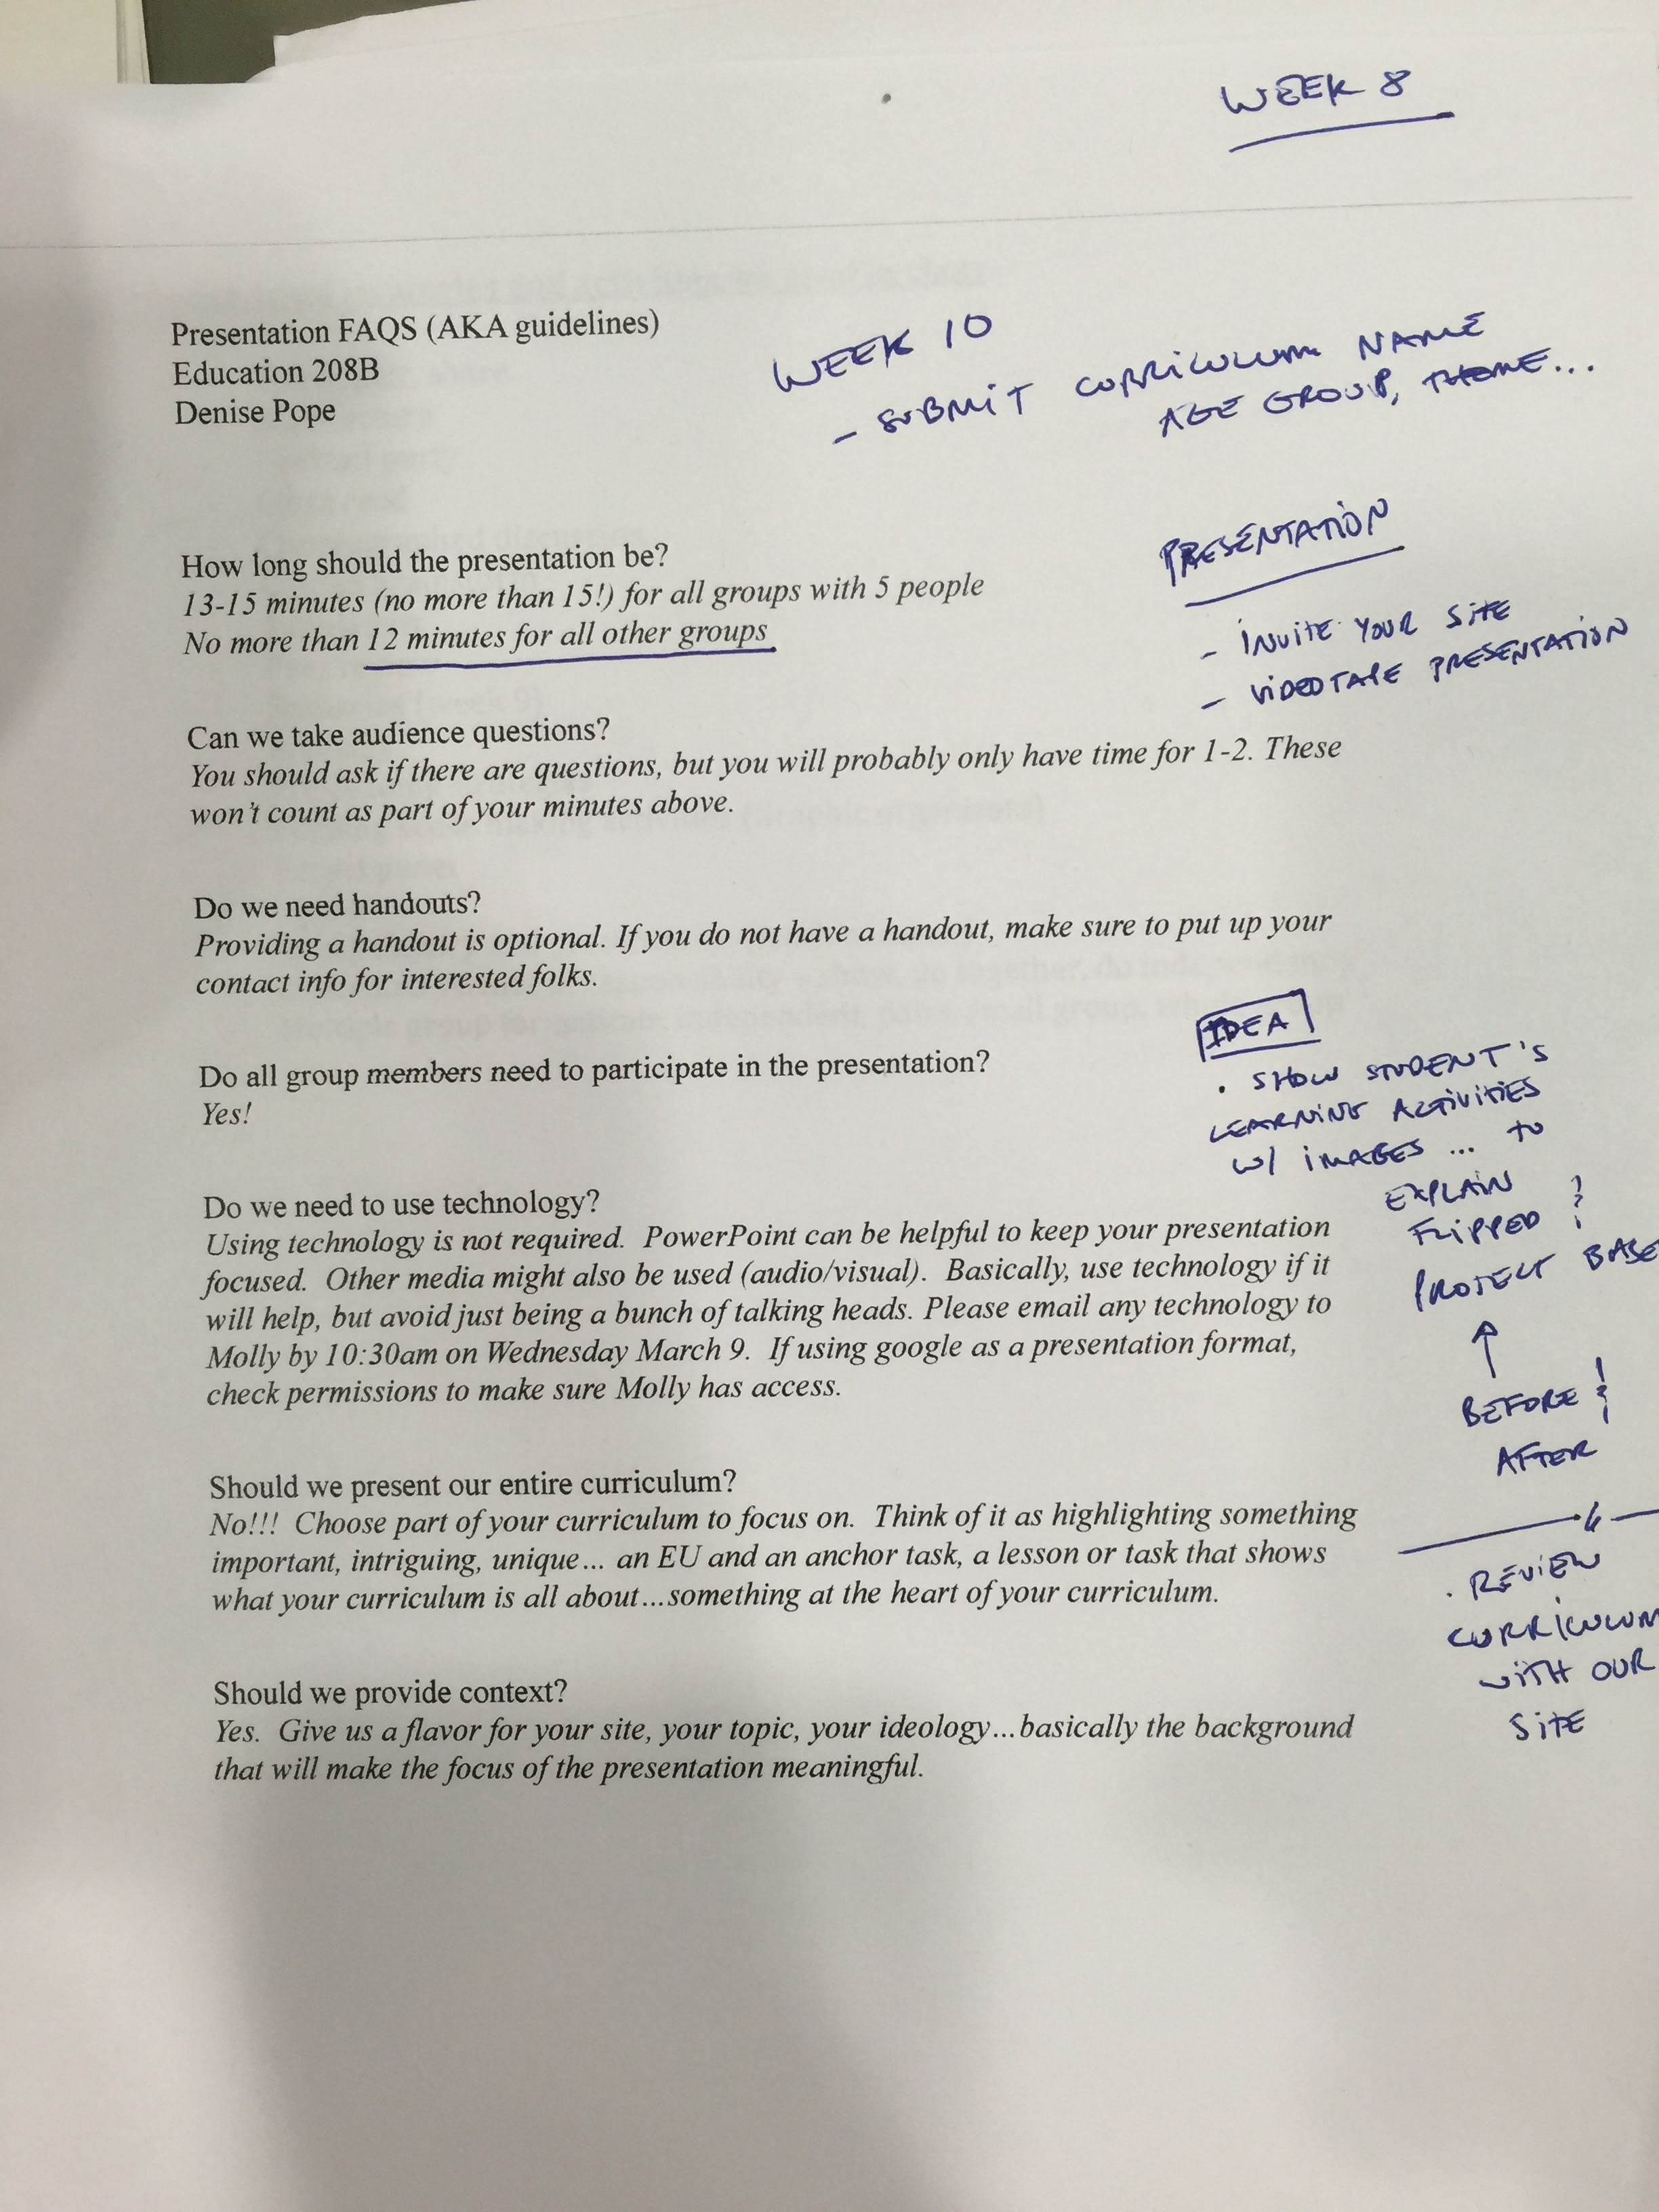 WEEK 8
Presentation FAQS (AKA guidelines)
Education 208B
Denise Pope
WEEK 10
- SUBMIT CURRICULUM NAME
AGE GROUP, THEME...
PRESENTATION
- INVITE YOUR SITE
- VIDEOTAPE PRESENTATION
How long should the presentation be?
13-15 minutes (no more than 15!) for all groups with 5 people
No more than 12 minutes for all other groups
Can we take audience questions?
You should ask if there are questions, but you will probably only have time for 1-2. These
won't count as part of your minutes above.
Do we need handouts?
Providing a handout is optional. If you do not have a handout, make sure to put up your
contact info for interested folks.
Do all group members need to participate in the presentation?
Yes!
IDEA
. SHOW STUDENT'S
LEARNING ACTIVITIES
W/ IMAGES ... TO
EXPLAIN
FLIPPED &
PROJECT BASE
BEFORE &
AFTER
Do we need to use technology?
Using technology is not required. PowerPoint can be helpful to keep your presentation
focused. Other media might also be used (audio/visual). Basically, use technology if it
will help, but avoid just being a bunch of talking heads. Please email any technology to
Molly by 10:30am on Wednesday March 9. If using google as a presentation format,
check permissions to make sure Molly has access.
Should we present our entire curriculum?
No!!! Choose part of your curriculum to focus on. Think of it as highlighting something
important, intriguing, unique... an EU and an anchor task, a lesson or task that shows
what your curriculum is all about...something at the heart of your curriculum.
. REVIEW
CURRICULUM
WITH OUR
SITE
Should we provide context?
Yes. Give us a flavor for your site, your topic, your ideology...basically the background
that will make the focus of the presentation meaningful.